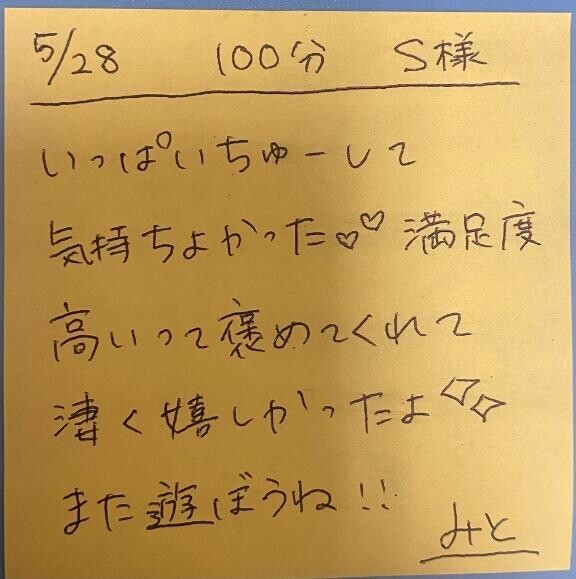 5/28 100分 S様
いっぱいちゅーして
気持ちよかった♡♡ 満足度
高いって褒めてくれて
凄く嬉しかったよ
また遊ぼうね!!
みと